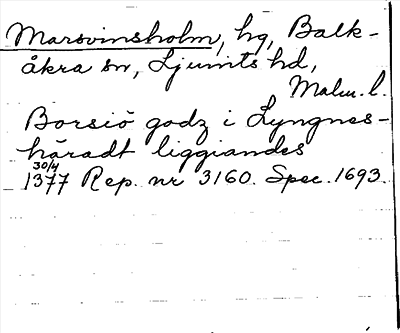 Marsvinsholm, hg, Balk-
åkra sn, Ljunits hd,
Malm. l.
Borsiö godz i Lyngnes-
häradt liggiandes
30/4
1377 Rep. nr 3160. Spec. 1693.